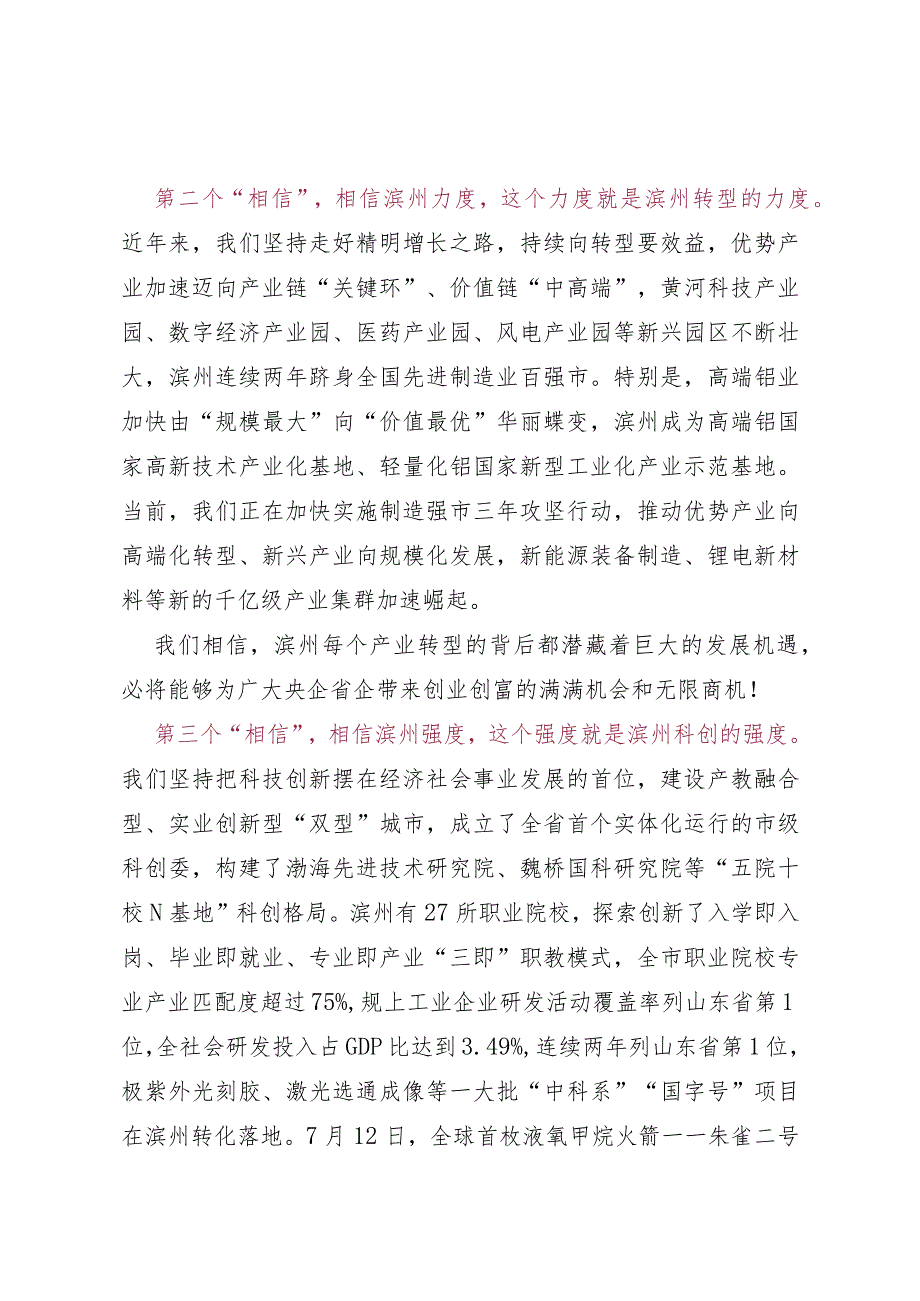 第二个“相信”，相信滨州力度，这个力度就是滨州转型的力度。
近年来，我们坚持走好精明增长之路，持续向转型要效益，优势产
业加速迈向产业链“关键环”、价值链“中高端”，黄河科技产业
园、数字经济产业园、医药产业园、风电产业园等新兴园区不断壮
大，滨州连续两年跻身全国先进制造业百强市。特别是，高端铝业
加快由“规模最大”向“价值最优”华丽蝶变，滨州成为高端铝国
家高新技术产业化基地、轻量化铝国家新型工业化产业示范基地。
当前，我们正在加快实施制造强市三年攻坚行动，推动优势产业向
高端化转型、新兴产业向规模化发展，新能源装备制造、锂电新材
料等新的千亿级产业集群加速崛起。
我们相信，滨州每个产业转型的背后都潜藏着巨大的发展机遇，
必将能够为广大央企省企带来创业创富的满满机会和无限商机！
第三个“相信”，相信滨州强度，这个强度就是滨州科创的强度。
我们坚持把科技创新摆在经济社会事业发展的首位，建设产教融合
型、实业创新型“双型”城市，成立了全省首个实体化运行的市级
科创委，构建了渤海先进技术研究院、魏桥国科研究院等“五院十
校N基地”科创格局。滨州有27所职业院校，探索创新了入学即入
岗、毕业即就业、专业即产业“三即”职教模式，全市职业院校专
业产业匹配度超过75%,规上工业企业研发活动覆盖率列山东省第1
位,全社会研发投入占GDP比达到3.49%,连续两年列山东省第1位，
极紫外光刻胶、激光选通成像等一大批“中科系”“国字号”项目
在滨州转化落地。7月12日，全球首枚液氧甲烷火箭一一朱雀二号